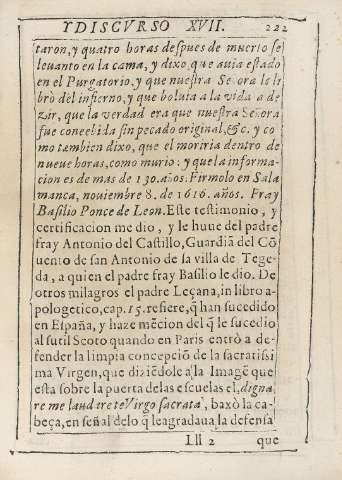 Y DISCVRSO XVII. 222
taron, y quatro horas despues de muerto se
leuanto en la cama, y dixo, que auia estado
en el Purgatorio, y que nuestra Señora le li
brò del infierno, y que boluia a la vida a de
zir, que la verdad era que nuestra Señora
fue concebida sin pecado original, &c. y co
mo tambien dixo, que el moriria dentro de
nueue horas, como murio: y que la informa-
cion es de mas de 130. años. Firmolo en Sala
manca, nouiembre 8. de 1616. años. Fray
Basilio Ponce de Leon. Este testimonio, y
certificacion me dio, y le huue del padre
fray Antonio del Castillo, Guardiã del Cõ
uento de san Antonio de la villa de Tege-
da, a quien el padre fray Basilio le dio. De
otros milagros el padre Leçana, in libro a-
pologetico, cap. 15. refiere, q̃ han sucedido
en España, y haze mẽcion del q̃ le sucedio
al sutil Scoto quando en Paris entrò a de-
fender la limpia concepciõ de la sacratissi
ma Virgen, que diziẽdole a la Imagẽ que
esta sobre la puerta de las escuelas el, digna
re me laudare te Virgo sacrata, baxò la ca-
beça, en señal de lo q̃ le agradaua, la defensa
Lll 2 que